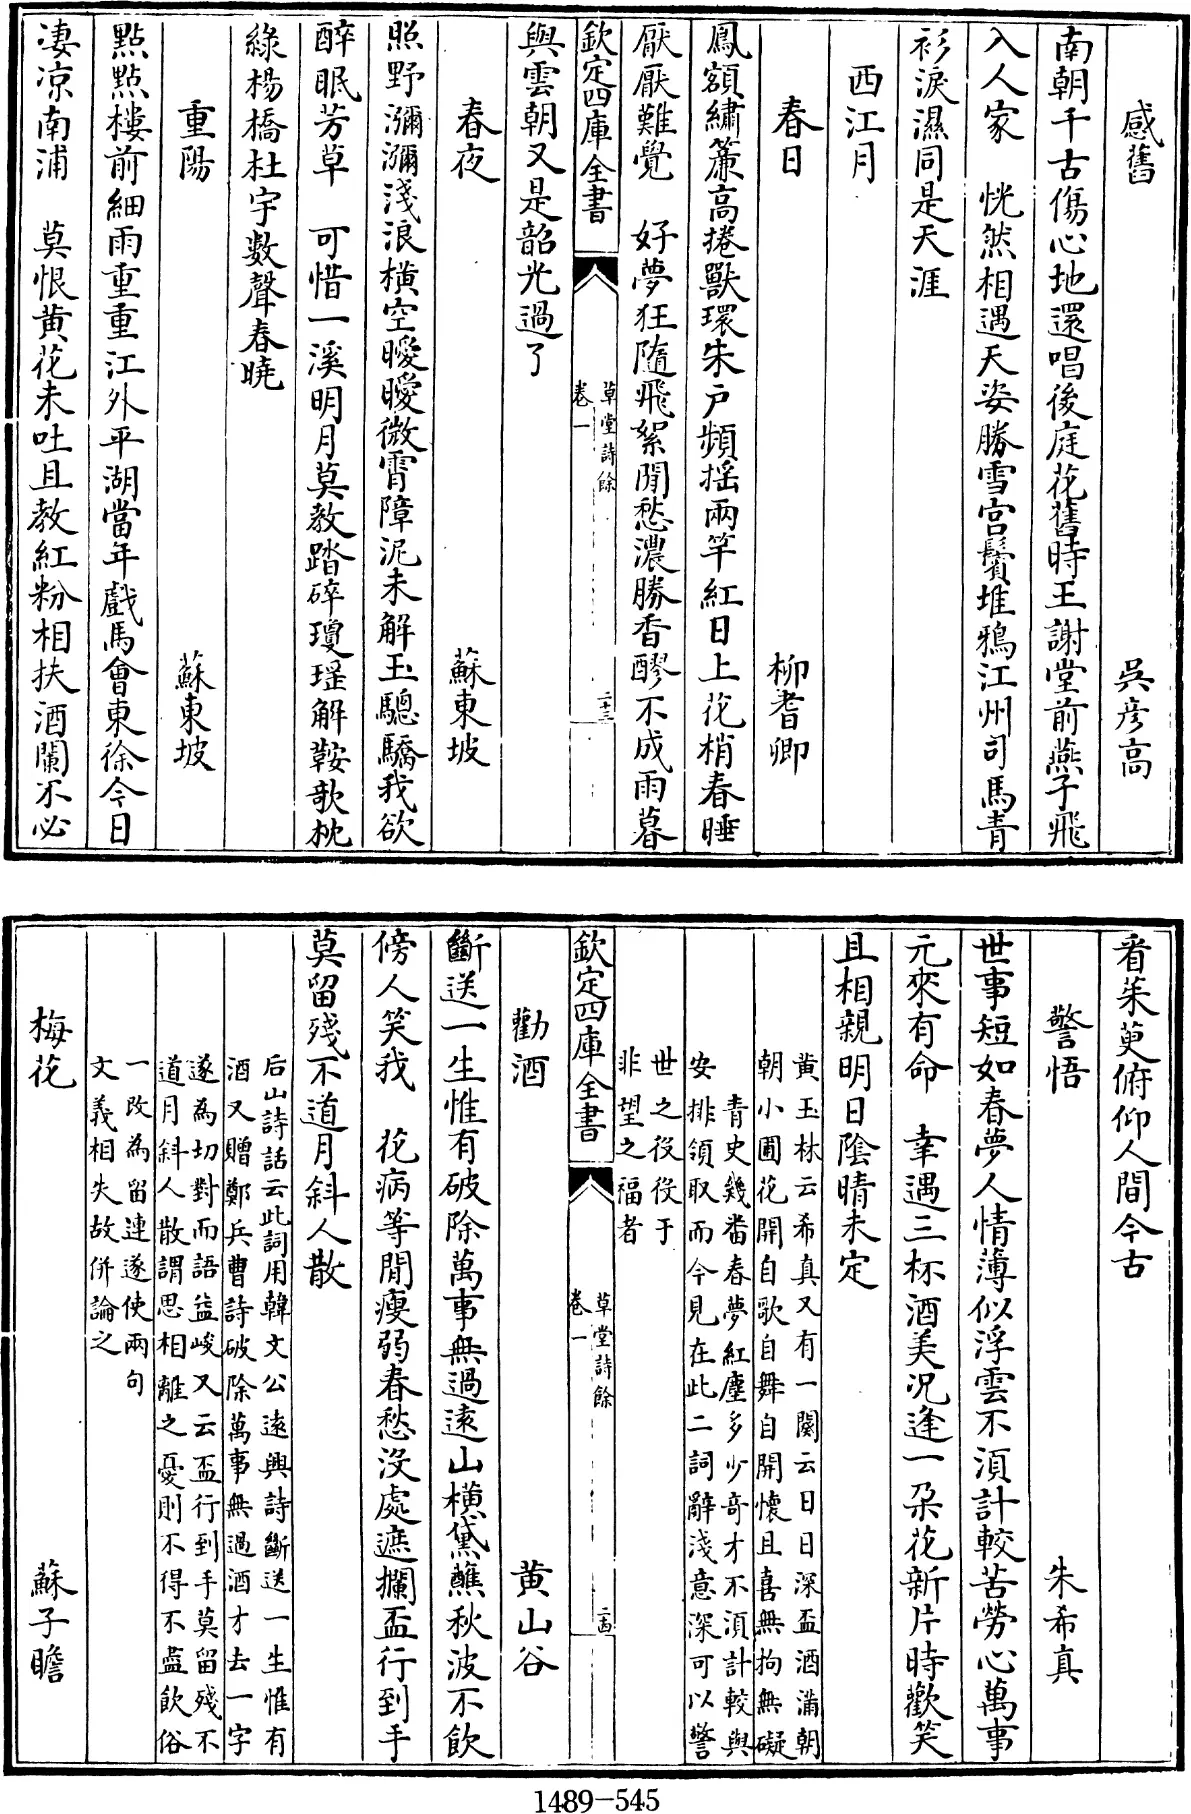 感舊 吳彦高
南朝千古傷心地還唱後庭花舊時王謝堂前燕子飛
入人家 恍然相遇天姿勝雪宫鬢堆鴉江州司馬青
衫淚濕同是天涯
西江月
春日 柳耆卿
鳳額繡簾高捲獸環朱户頻揺兩竿紅日上花梢春睡
厭厭難覺 好夢狂隨飛絮閒愁濃勝香醪不成雨暮
欽定四庫全書
草堂詩餘
卷一
二十三
與雲朝又是韶光過了
春夜 蘇東坡
照野瀰瀰淺浪横空曖曖微霄障泥未解玉驄驕我欲
醉眠芳草 可惜一溪明月莫教踏碎瓊瑶解鞍欹枕
綠楊橋杜宇數聲春曉
重陽 蘇東坡
點點樓前細雨重重江外平湖當年戲馬會東徐今日
淒凉南浦 莫恨黄花未吐且教紅粉相扶酒闌不必
看茱萸俯仰人間今古
警悟 朱希真
世事短如春夢人情薄似浮雲不須計較苦勞心萬事
元來有命 幸遇三杯酒美况逢一朶花新片時歡笑
且相親明日陰晴未定
黄玉林云希真又有一闋云日日深盃酒滿朝
朝小圃花開自歌自舞自開懷且喜無拘無礙
青史幾畨春夢紅塵多少奇才不須計較與
安排領取而今見在此二詞辭淺意深可以警
世之役役于
非望之福者
欽定四庫全書
草堂詩餘
卷一
二十四
勸酒 黄山谷
斷送一生惟有破除萬事無過遠山横黛蘸秋波不飲
傍人笑我 花病等閒瘦弱春愁沒處遮攔盃行到手
莫留殘不道月斜人散
后山詩話云此詞用韓文公遠興詩斷送一生惟有
酒又贈鄭兵曹詩破除萬事無過酒才去一字
遂為切對而語益峻又云盃行到手莫留殘不
道月斜人散謂思相離之憂則不得不盡飲俗
一改為留連遂使兩句
文義相失故併論之
梅花 蘇子瞻
1489-545